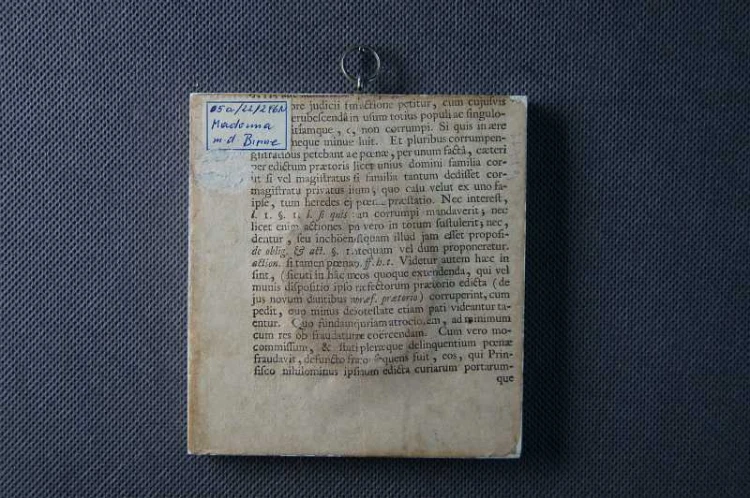 05a/22/246N
Madonna
m d Birne
ore judicii in factione petitur, cum cujusvis
erubescenda in usum totius populi ac singulo-
itiamque, c, non corrumpi. Si quis in ære
neque minus luit. Et pluribus corrumpen-
gistratibus petebant ac pœnæ, per unum factâ, cæteri
per edictum prætoris licet unius domini familia cor-
ut si vel magistratus si familia tantum dedisset cor-
magistratu privatus quo calu velut ex uno fa-
ipse, tum heredes ej præstatio. Nec interest,
l. 1. §. 1. l. si quis an corrumpi mandaverit; nec
licet enim actiones pa vero in totum sustulerit; nec,
dentur, seu illud jam esset proposi-
de oblig. & act. §. 1. atequam vel dum proponeretur.
action. si tamen pœnam ff. h. t. Videtur autem hæc in
sint, (sicuti in hac meos quoque extendenda, qui vel
munis dispositio ipso ræfectorum prætorio edicta (de
jus novum præf. prætorio) corruperint, cum
pedit, quo minus etiam pati videantur ta-
entur. Quo ad minimum
cum res ob coërcendam. Cum vero mo-
commissum, & stati pleræque delinquentium pœnæ
fraudavit, defuncto sequens fuit, eos, qui Prin-
fisco nihilominus ipsaum edicta curiarum portarum-
que